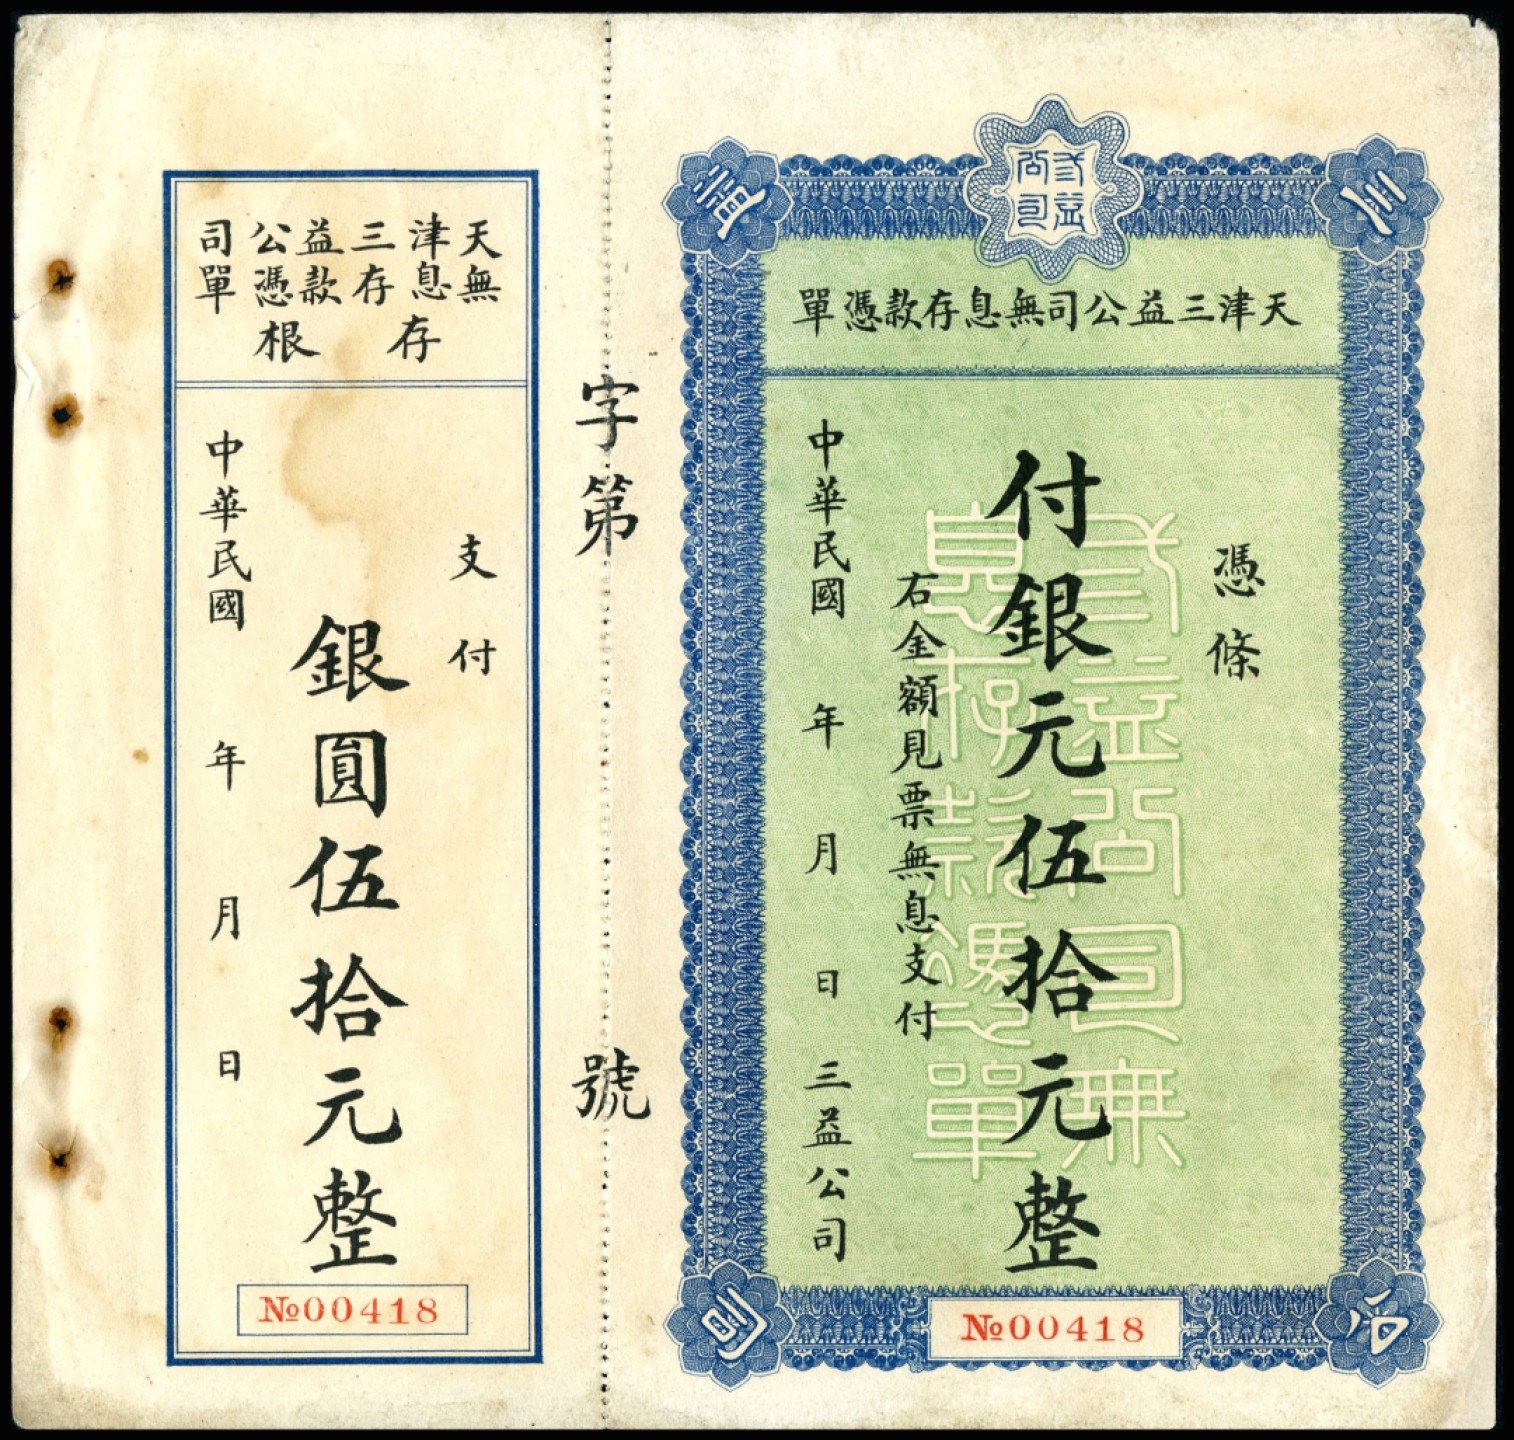 三益公司
三益公司
天津三益公司無息存款憑單
憑條
付銀元伍拾元整
右金額見票無息支付
中華民國 年 月 日 三益公司
三益公司無息存款憑單
№00418
字第 號
天津三益公司
無息存款憑單
存根
支付
銀圓伍拾元整
中華民國 年 月 日
№00418